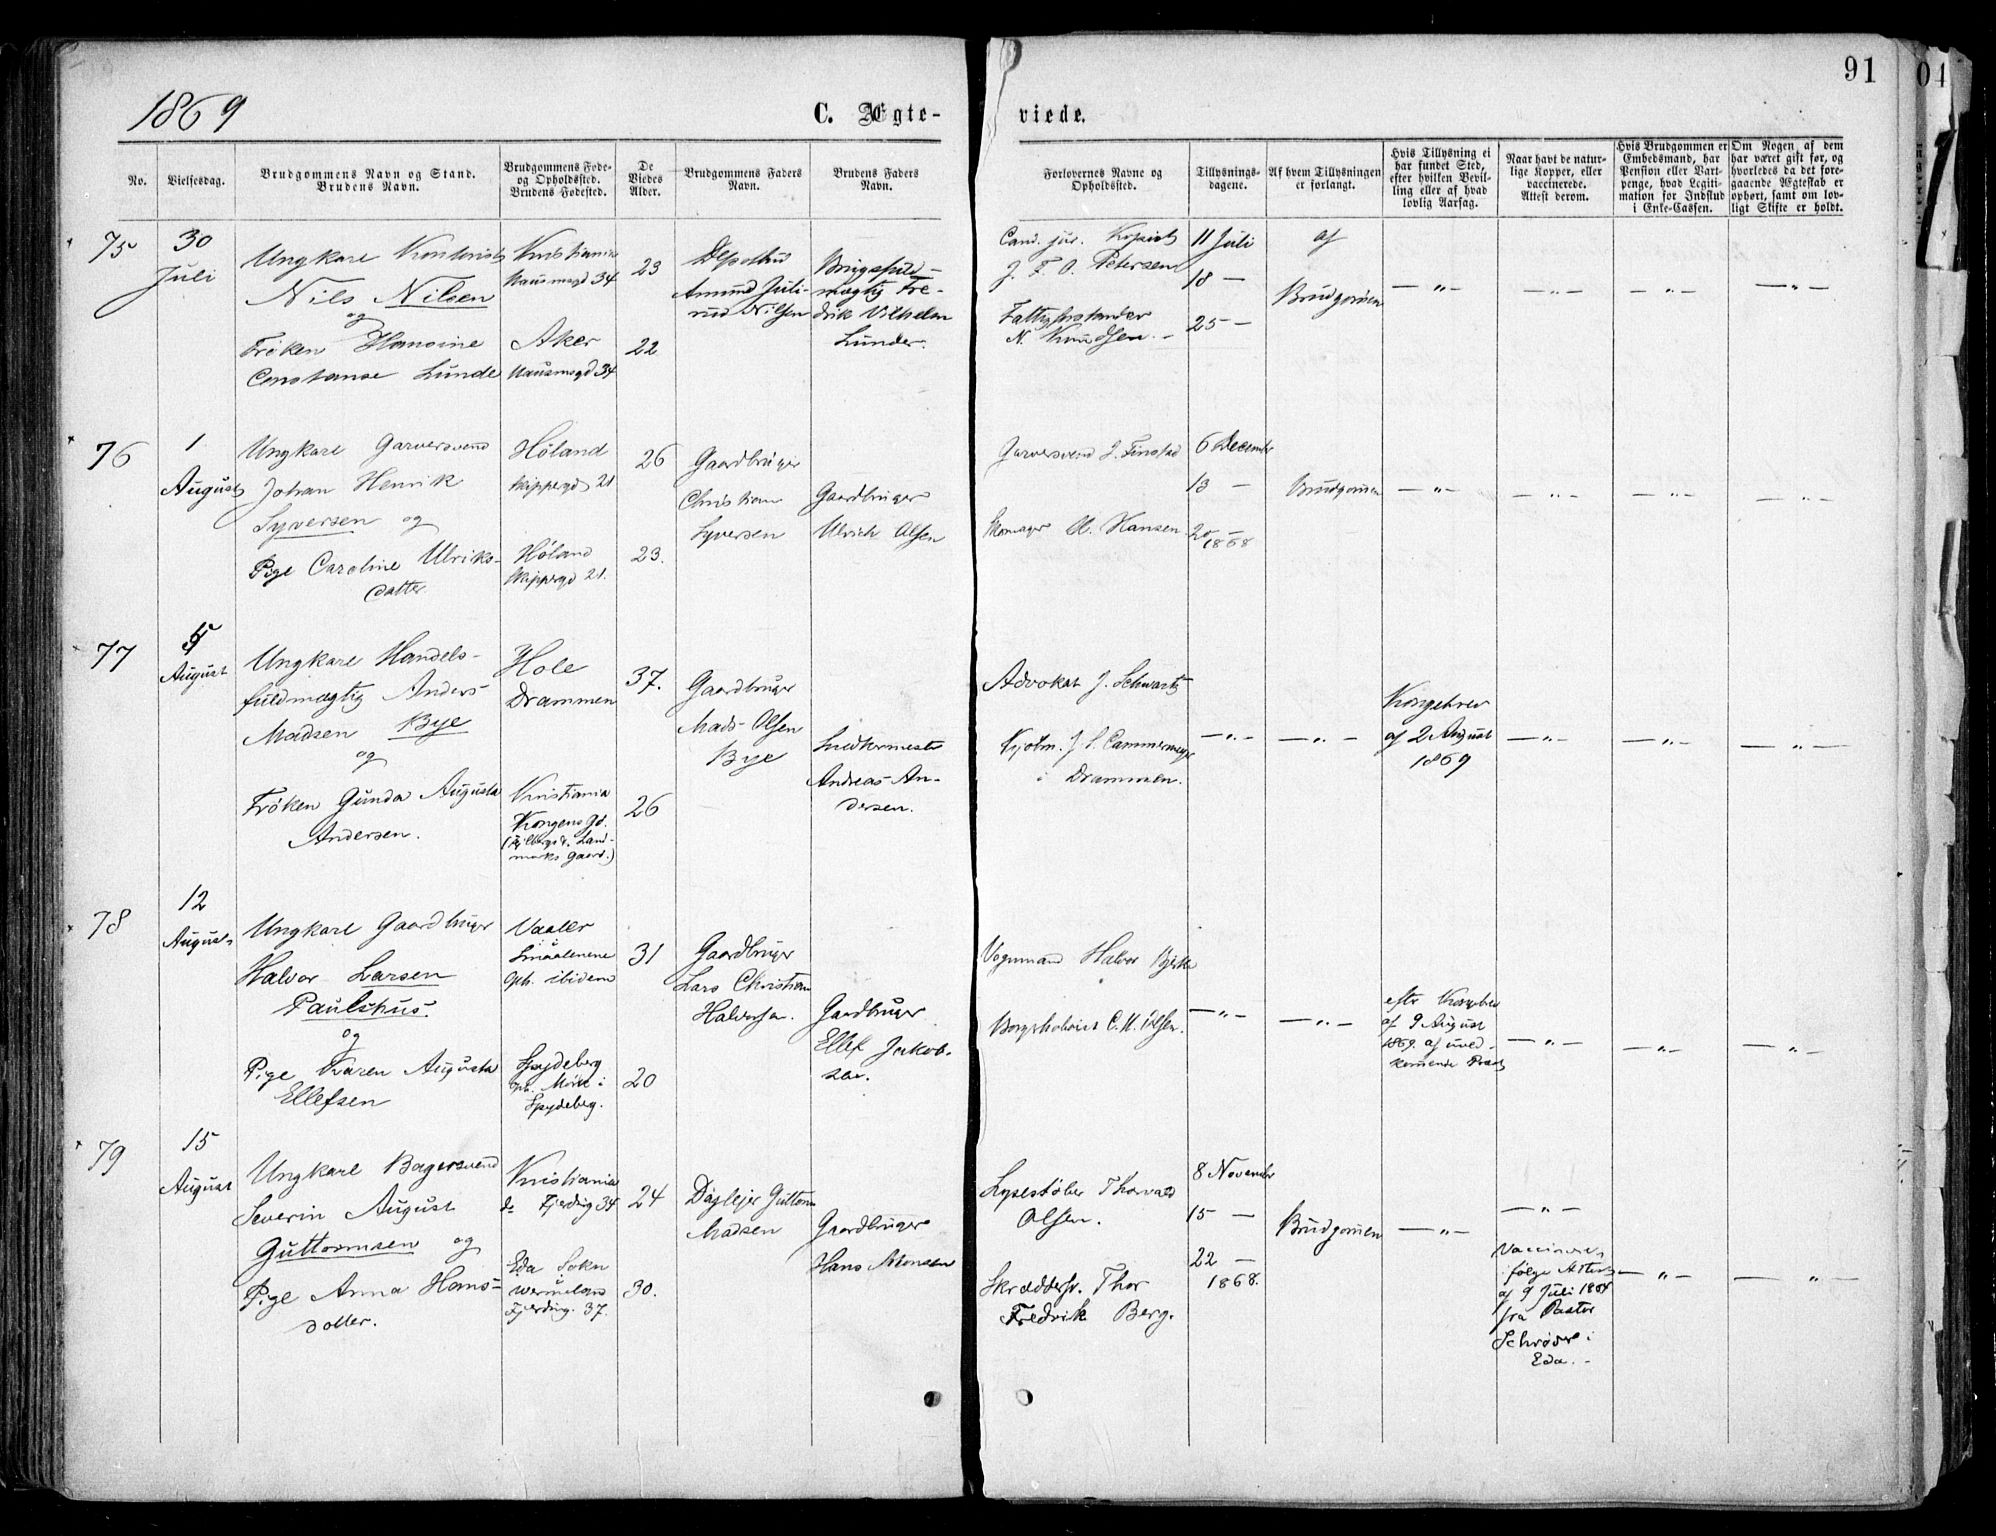 91
04
1869
C. Ægte-
viede.
No.
Vielsesdag.
Brudgommens Navn og Stand.
Brudens Navn.
Brudgommens Føde-
og Opholdssted.
Brudens Fødested.
De
Viedes
Alder.
Brudgommens Faders
Navn.
Brudens Faders
Navn.
Forlovernes Navne og
Opholdssted.
Tillysnings-
dagene.
Af hvem Tillysningen
er forlangt.
Hvis Tillysning ei
har fundet Sted,
efter hvilken Bevil-
ling eller af hvad
lovlig Aarsag.
Naar havt de natur-
lige Kopper, eller
vaccinerede.
Attest derom.
Hvis Brudgommen er
Embedsmand, har
Pension eller Vart-
penge, hvad Legiti-
mation for Indskud
i Enke-Cassen.
Om Nogen af dem
har været gift før, og
hvorledes da det fore-
gaaende Ægteskab er
ophørt, samt om lov-
ligt Skifte er holdt.
75
30
Juli
Ungkarl Kontorist
Nils Nilsen
og
Frøken Hansine
Constanse Lunde
Kristiania
Hausmsgd 34
Aker
Hausmsgd 34
23
22
Amund Juli-
Nilsen
mægtig Fre-
drik Vilhelm
Lunde.
Cand. jur. Kopist
J. F. O. Petersen
Fattigforstander
N. Knudsen. -
11 Juli
18 -
25 -
af
Brudgomen
- " -
- " -
- " -
- " -
76
1
August
Ungkarl Garversvend
Johan Henrik
Syversen og
Pige Caroline Ulriks-
datter
Høland
Skippergd 21
Høland
Skippergd 21.
26
23.
Gaardbruger
Christian
Syversen
Gaardbruger
Ulrich Olsen
Garversvend J. Finstad
Skomager H. Hansen
6 December
13 -
20 -
1868
Brudgomen
- " -
- " -
- " -
- " -
77
5
August
Ungkarl Handels-
fuldmægtig Anders
Madsen Bye
og
Frøken Gunda Augusta
Andersen.
Hole
Drammen
Kristiania
Kongens Gd.
37.
26
Gaardbruger
Mads Olsen
Bye
Snedkermester
Andreas An-
dersen.
Advokat J. Schwartz
Kjøbm. J. C. Cammermeyer
i Drammen.
- " -
- " -
Kongebrev
af 2 August
1869
- " -
- " -
- " -
78
12
August
Ungkarl Gaardbruger
Halvor Larsen
Paulshus.
og
Pige Karen Augusta
Ellefsen
Vaaler
Smaalenene
Oph. ibidem
Spydeberg
Oph. Moss i
Spydeberg.
31
20
Gaardbruger
Lars Christian
Halvorsen.
Gaardbruger
Ellef Jakob-
sen.
Vognmand Halvor Bjerke
C. H. Olsen.
- " -
- " -
efter Kongebrev
af 9 August
1869 af uved-
kommende Præst
- " -
- " -
- " -
79
15
August
Ungkarl Bagersvend
Severin August
Guttormsen og
Pige Anna Hans-
datter.
Kristiania
do Fjerding 34
Eda Sokn
Wermeland
Fjerding. 37.
24
30.
Daglejer Guttorm
Madsen
Gaardbruger
Hans Monsen
Lysestøber Thorvald
Olsen.
Skrædder. Thor
Fredrik Berg.
8 November
15 -
22 -
1868.
Brudgomen
- " -
- " -
Vaccineret
ifølge Attest
af 9 Juli 1864
fra Pastor
Schrøder i
Eda. -
- " -
- " -